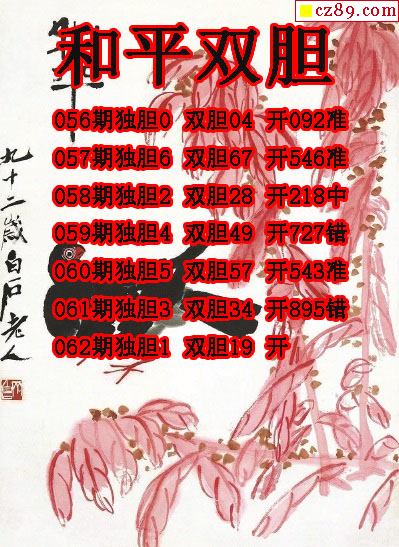 cz89.com
和平双胆
056期独胆0 双胆04 开092准
057期独胆6 双胆67 开546准
058期独胆2 双胆28 开218中
059期独胆4 双胆49 开727错
060期独胆5 双胆57 开543准
061期独胆3 双胆34 开895错
062期独胆1 双胆19 开
九十二岁白石老人